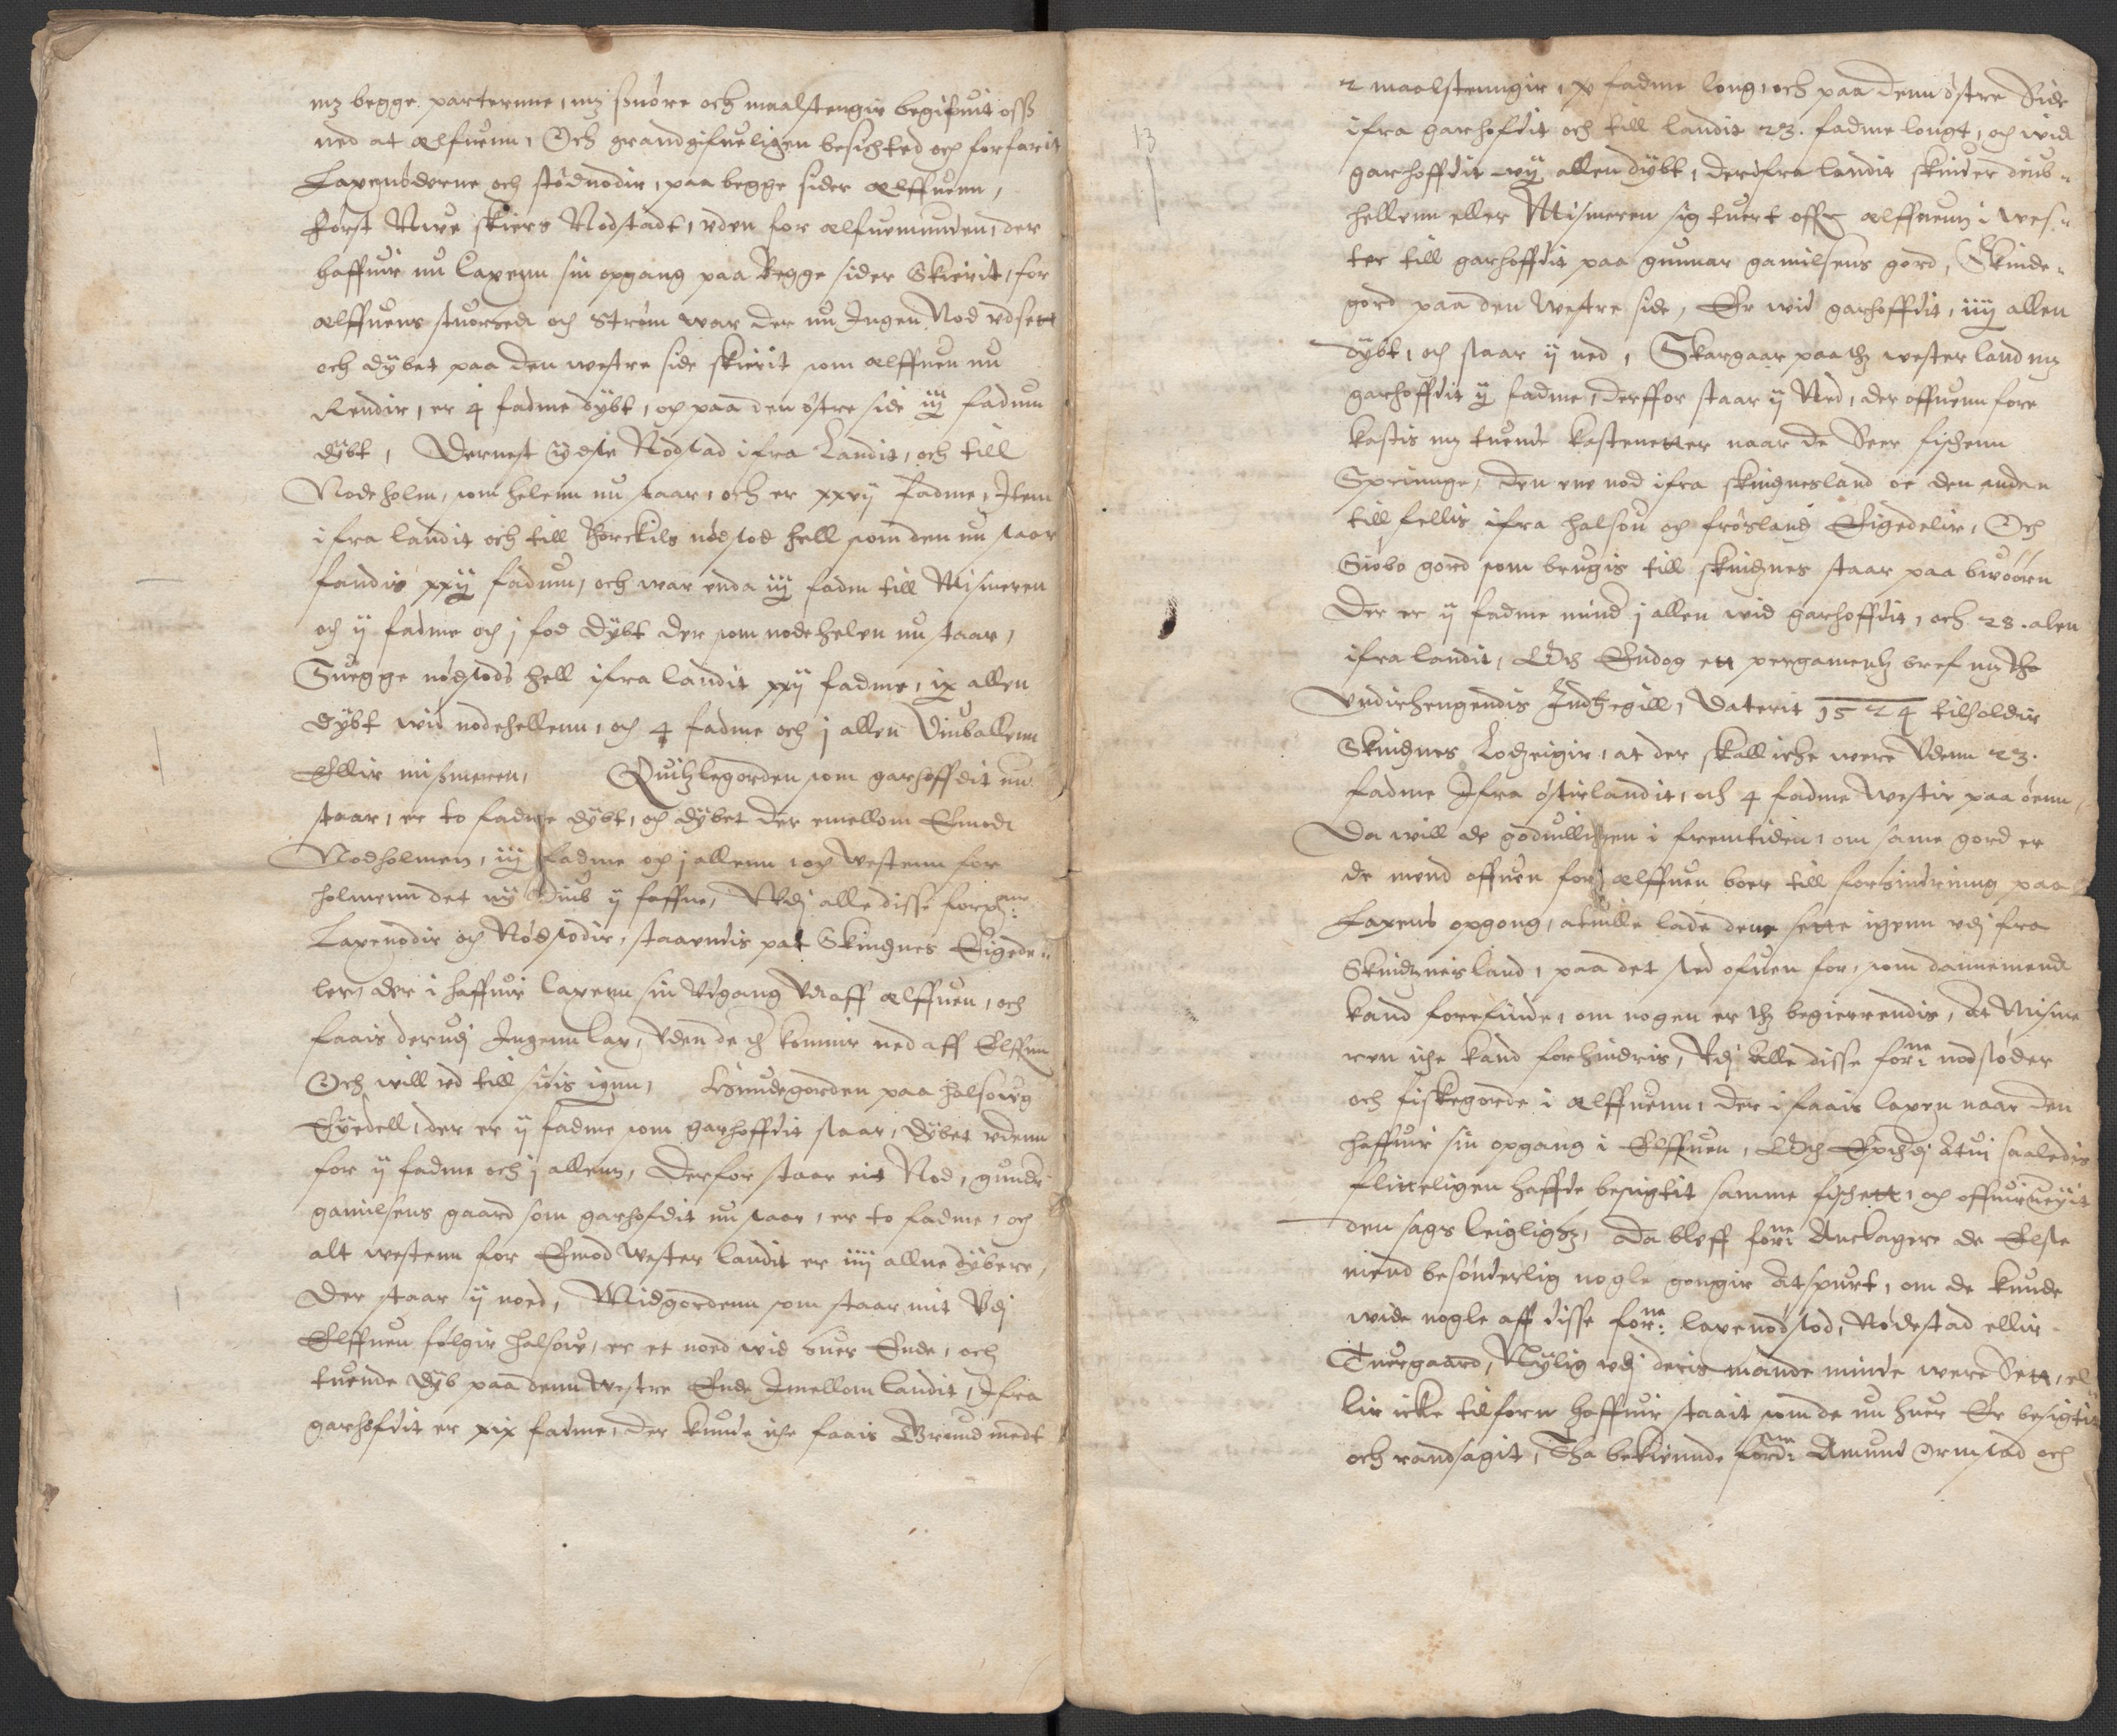 mz begge parterne, mz snöre och maalstenger begifuit oss
ned at elfuenn, Och grandgifueligen besichted och forfarit
Laxenöderne och stödnodir, paa begge sider elffuenn,
först Nye skiers Nodstadt, vden for elfuemunden, der
haffuir nu laxenn sin opgang paa begge sider Skierit, for
elffuens och Ström war der nu Ingen Nod vdsett
och dybet paa den westre side skierit som elffuen nu
Rendir, er 4 fadme dybt, och paa den östre side iij fadum
dybt, Dernest yeste Nodstad ifra Landit, och till
Nodeholm, som helenn nu staar, och er xxvij fadme, Item
ifra landit och till Torckils nödstod hell som den nu staar
fandis xxij fadum, och war enda iij fadm till Mismeren
och ij fadme och j fod dybt der som nodehelen nu staar,
Suegge nödstods hell ifra landit xxij fadme, ix allen
dybt wid nodehellenn, och 4 fadme och j allen Diuballenn
Ellir mismeren, Quislegorden som garhoffdit nu
staar, er to fadme dybt, och dybet der emellom Emod
Nodholmen, iij fadme och j allenn, och westenn for
holmenn det ny Diub ij faffne, Vdj alle disse forne
Laxenodir och Nödstodir, staaendis paa Skingnes Eigede-
ler, der i haffuir laxenn sin Vdgang Vdaff elffuen, och
faais derudj Ingenn lax, Vden de ich kommir ned aff Elffuen
Och will vd till siös igen, Endegorden paa halsoug
Eyedell, der er ij fadme som garhoffdit staar, dybet vdenn
for ij fadme och j allenn, Derfor staar eit Nod, gunder
gamilsens gaard som garhofdit nu staar, er to fadme, och
alt westenn for Emod wester landit er iiij allne dybere,
Der staar ij noed, Midgordenn som staar mit Vdj
Elffuen fölgir halsou, er et noed wid huer Ende, och
tuende dyb paa denn Westre Ende Imellom landit, Ifra
garhöfdit er xix fadme, der kunde iche faais Grund medt
13
2 maalstenngir, x fadme long, och paa denn östre Side
ifra garhofdit och till landit 23. fadme longt, och wid
garhoffdit vij allen dybt, derifra landit skinder diub-
hellenn eller Mismeren sig tuert offr elffuenn i wes-
ter till garhoffdit paa gunnar gamilsens gord, Skinde-
gord paa den Westre side, Er wid garhoffdit, iiij allen
dybt, och staar ij ned, Skargaar paa thz wester land mz
garhoffdit ij fadme, derffor staar ij Ned, der offuenn fore
kastis mz tuende kastenetter naar de Seer fischenn
Springe, den ene nod ifra skingnesland oc den anden
till fellis ifra halsou och frösland Eigedelir, Och
Siöbo gord som brugis till skingnes staar paa bwöörn
Der er ij fadme mind j allen wid garhoffdit, och 28. alen
ifra landit, Och Endog ett pergamentz bref mz tho
vndirhengendis Indzegill, Daterit 1524 tilholdir
Skingnes Lodzeigir, at der skall iche were Vdenn 23.
fadme Ifra östirlandit, och 4 fadme Westir paa öenn,
Da will de goduilligen i fremtiden, om same gord er
de mend offuen for elffuen boer till forhindring paa
Laxens opgong, atuille lade denn sette igenn vdj fra
Skindzneis land, paa det sted ofuen for, som dannemend
kand forefinde, om nogen er thz begierrendis, At Misme
ren iche kand forhindris, Vdj Alle disse forne nodstöder
och fiskegorde i elffuenn, der i faais laxen naar den
haffuir sin opgang i Elffuen, Och Epther Atuj saaledis
flitteligen haffde besigtit samme fischett, och offuirueyit
den sags leiglighz, Da bleff forne Anclagere de Elste
mend besönderlig nogle gongir Atspurt, om de kunde
wide nogle aff disse forne laxenödstod, Nödestad ellir
Tuergaard, Nylig vdj deris mande minde were Sett, el
lir icke tilforn haffuir staait som de nu huer Er besigtit
och randsagit, Tha bekiennde forde Amund Ormstad och